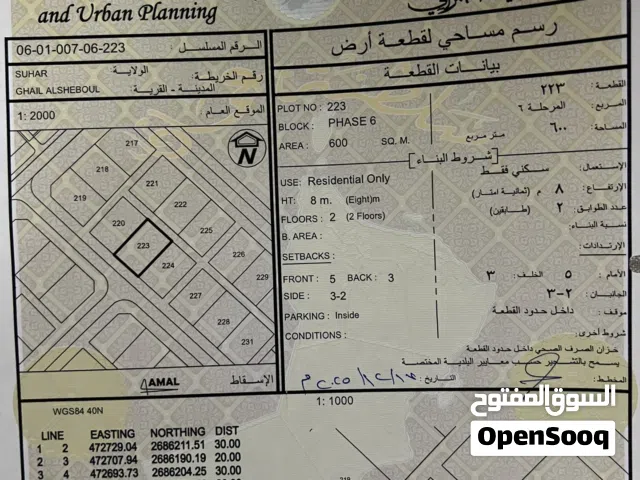 and Urban Planning
رسم مساحي لقطعة أرض
06-01-007-06-223 الرقم المسلسل :
بيانات القطعة
SUHAR الولاية :
رقم الخريطة :
GHAIL ALSHEBOUL المدينة - القرية :
1: 2000 الموقع العام
PLOT NO : 223
القطعة : ٢٢٣
BLOCK : PHASE 6
المربع : المرحلة ٦
AREA : 600 SQ. M. متر مربع
المساحة : ٦٠٠
شروط البناء
USE: Residential Only
الإستعمال: سكني فقط
HT: 8 m. (Eight)m
الإرتفاع : ٨ م (ثمانية امتار)
FLOORS : 2 (2 Floors)
عدد الطوابق : ٢ (طابقين)
B. AREA :
نسبة البناء:
SETBACKS :
الإرتدادات :
FRONT : 5 BACK : 3
الأمام : ٥ الخلف : ٣
SIDE : 3-2
الجانبان : ٢-٣
PARKING : Inside
موقف: داخل حدود القطعة
CONDITIONS :
شروط أخرى :
خزان الصرف الصحي داخل حدود القطعة
يسمح حسب معايير البلدية المختصة
المخطط :
التاريخ :
217
218
221
219
220
222
223
225
224
226
229
227
228
231
JAMAL
الإسقاط
WGS84 40N
1: 1000
LINE EASTING NORTHING DIST
1 2 472729.04 2686211.51 30.00
2 3 472707.94 2686190.19 20.00
3 4 472693.73 2686204.25 30.00
السوق المفتوح
OpenSooq